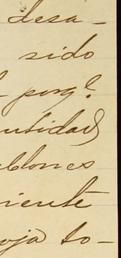 desa-
sido
porq?
entidad
ablones
riente
oja to-